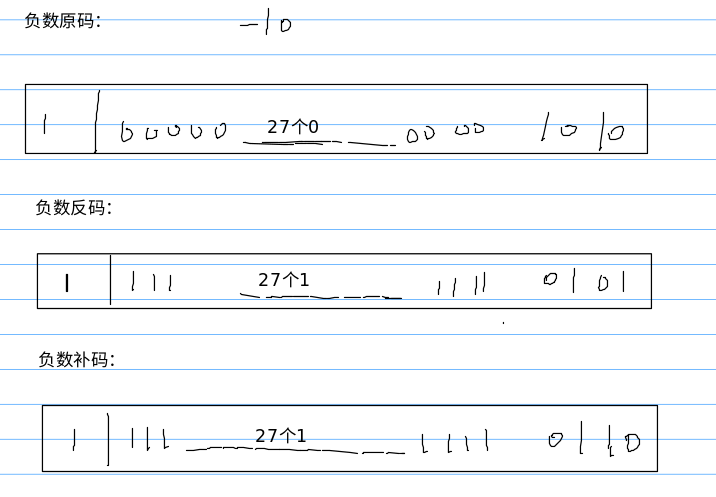 负数原码： -10
1 | 00000 27个0 0000 1010
负数反码：
1 | 111 27个1 1111 0101
负数补码：
1 | 111 27个1 1111 0110